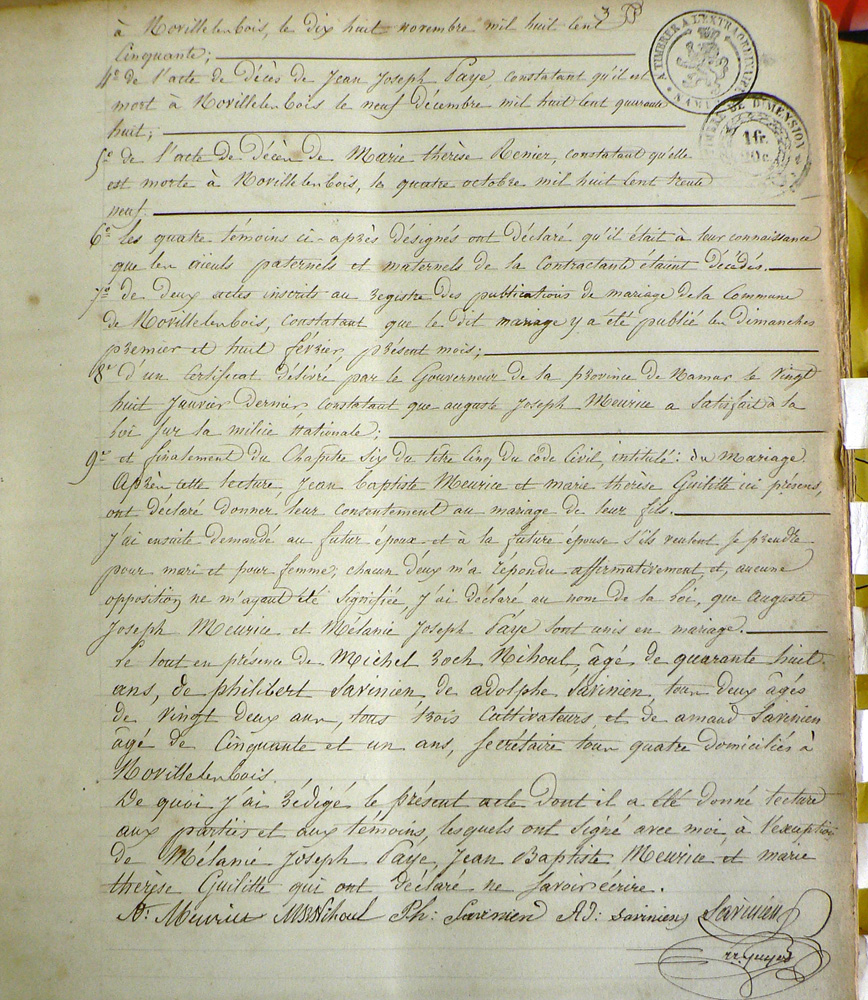 3
à Novillelenbois, le dix huit novembre mil huit cent
Cinquante;
4° de l'acte de décès de Jean Joseph Faye, constatant qu'il est
mort à Novillelenbois le neuf décembre mil huit cent quarante
huit;
5° de l'acte de décès de Marie thérèse Renier, constatant qu'elle
est morte à Novillelenbois, le quatre octobre mil huit cent trente
neuf.
6° les quatre témoins ci-après désignés ont déclaré qu'il était à leur connaissance
que les aïeuls paternels et maternels de la Contractante étaient décédés.
7° de deux actes inscrits au registre des publications de mariage de la Commune
de Novillelenbois, constatant que le dit mariage y a été publié les dimanches
premier et huit février, présent mois;
8° d'un certificat délivré par le Gouverneur de la province de Namur le vingt
huit Janvier dernier constatant que auguste Joseph Meurice a satisfait à la
loi sur la milice Nationale;
9° et finalement du Chapitre six du titre cinq du code Civil, intitulé: du Mariage.
Après cette lecture, Jean baptiste Meurice et marie thérèse Guilitte ici présens,
ont déclaré donner leur consentement au mariage de leur fils.
J'ai ensuite demandé au futur époux et à la future épouse s'ils veulent se prendre
pour mari et pour femme; chacun d'eux m'a répondu affirmativement et, aucune
opposition ne m'ayant été signifiée, j'ai déclaré au nom de la loi, que Auguste
Joseph Meurice et Mélanie Joseph Faye sont unis en mariage.
Le tout en présence de Michel Roch Nihoul, âgé de quarante huit
ans, de philibert Savinien, de adolphe Savinien, tous deux âgés
de vingt deux ans, tous trois Cultivateurs, et de amand Savinien
âgé de Cinquante et un ans, secrétaire tous quatre domiciliés à
Novillelenbois.
De quoi j'ai rédigé le présent acte dont il a été donné lecture
aux parties et aux témoins, lesquels ont signé avec moi, à l'exception
de Mélanie Joseph Faye, Jean Baptiste Meurice et marie
thérèse Guilitte qui ont déclaré ne savoir écrire.
At: Meurice Nihoul Ph: Savinien Ad: Savinien Savinien
A TIMBRER A L'EXTRAORDINAIRE
NAMUR
TIMBRE DE DIMENSION
1 fr.